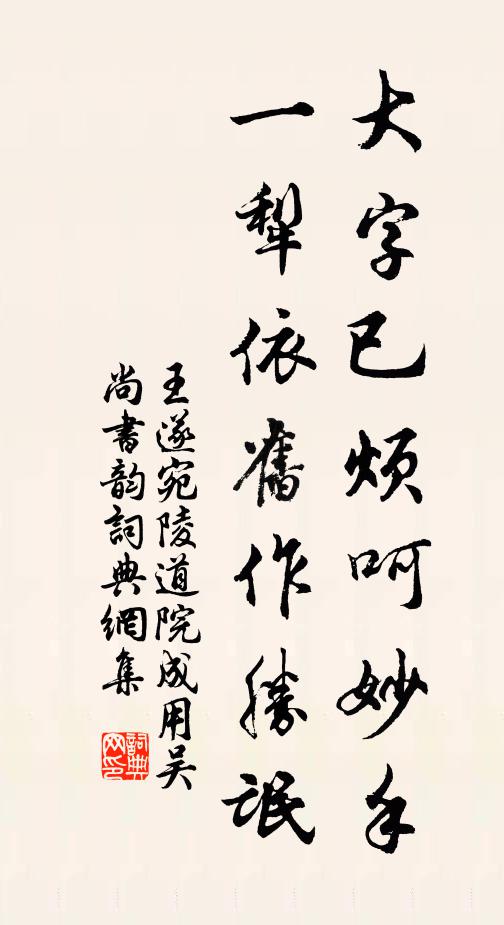 大字已煩呵妙手
一犁依舊作勝氓
王遂宛陵道院成用吳
尚書韵詞典網集
詞典网印